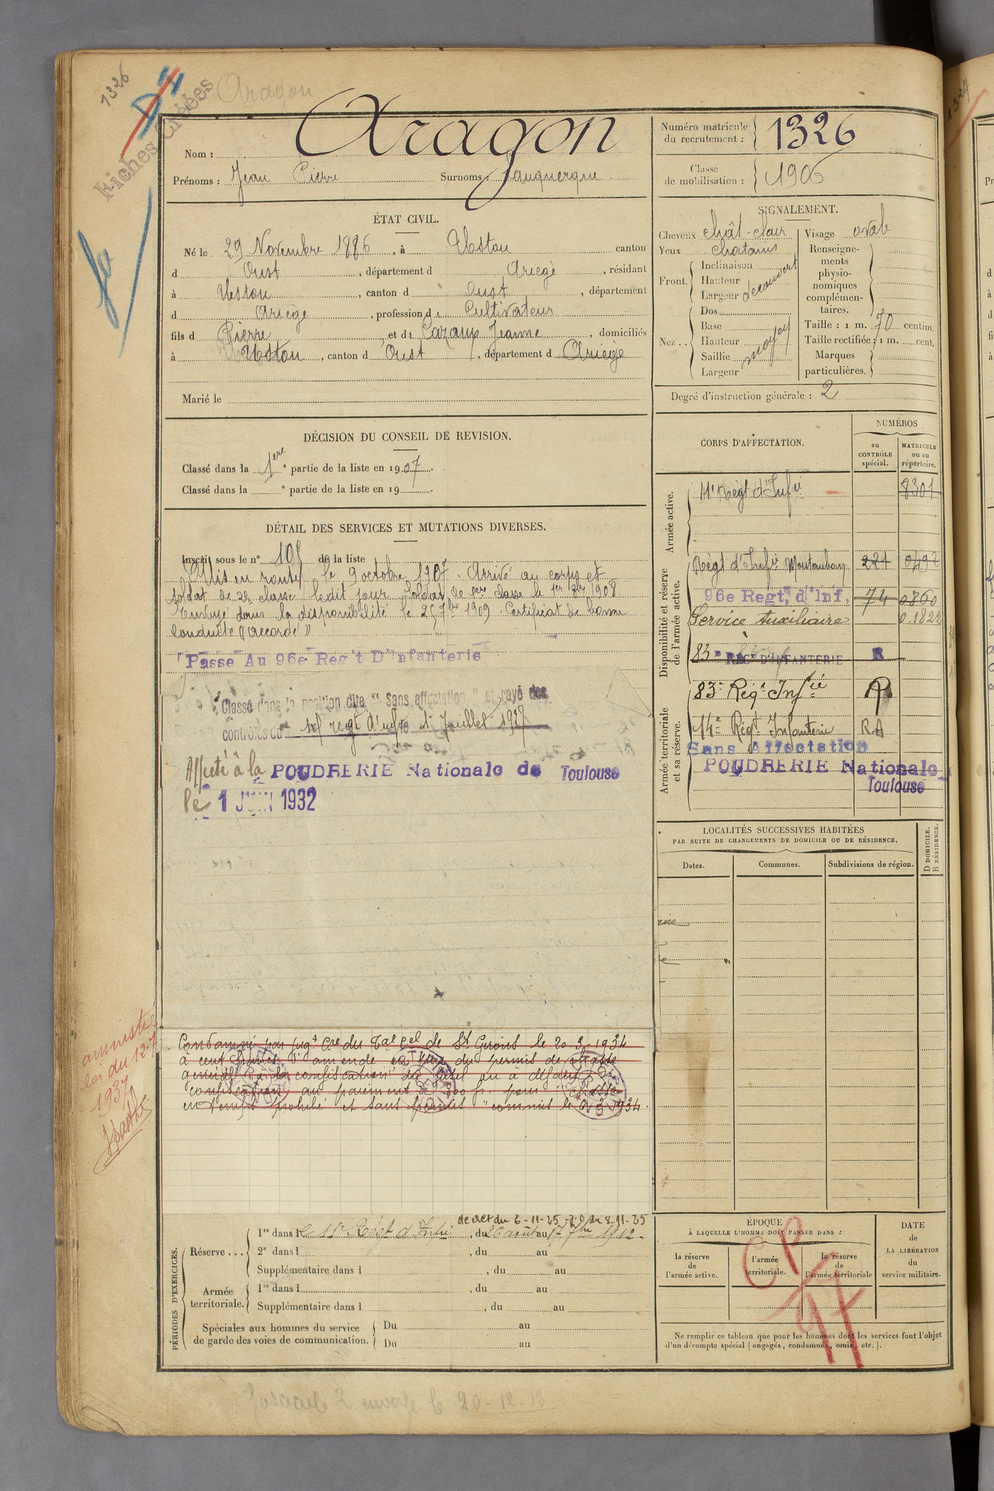 1326
Aragon
Fiches Croisées
Aragon
Nom :
Prénoms : Jean Pierre Surnoms :
Numéro matricule du recrutement : 1326
Classe de mobilisation : 1906
ÉTAT CIVIL.
Né le 29 Novembre 1886, à Ustou canton
d Oust, département d Ariège, résidant
à Ustou, canton d Oust, département
d Ariège, profession de Cultivateur
fils d Pierre et de Cazaux Jeanne, domiciliés
à Ustou, canton d Oust, département d Ariège
Marié le
SIGNALEMENT.
Cheveux chât-clair
Yeux chatains
Front. Inclinaison
Hauteur
Largeur découvert
Nez... Dos
Base
Hauteur
Saillie
Largeur moyen
Visage ovale
Renseignements physionomiques complémentaires.
Taille : 1 m. 70 centim.
Taille rectifiée : 1 m. cent.
Marques particulières.
Degré d'instruction générale : 2
DÉCISION DU CONSEIL DE REVISION.
Classé dans la 1ere partie de la liste en 1907.
Classé dans la e partie de la liste en 19
DÉTAIL DES SERVICES ET MUTATIONS DIVERSES.
Inscrit sous le n° 105 de la liste
Mis en route le 9 octobre 1907. Arrivé au corps et
soldat de 2e classe ledit jour. Soldat de 1ere classe le 1er 1908
Envoyé dans la disponibilité le 25 7bre 1909. Certificat de bonne
conduite "accordé"
Passé Au 96e Reg't D'Infanterie
Classé dans la position dite "Sans affectation" et rayé des
contrôles du regt d'infie 1er Juillet 1927
Affecté à la POUDRERIE Nationale de Toulouse
le 1 JUIN 1932
CORPS D'AFFECTATION.
NUMÉROS
au CONTRÔLE spécial.
MATRICULE ou au répertoire.
Armée active.
Régt d'Infie 8301
Disponibilité et réserve de l'armée active.
Régt d'Infie Montauban 221 0492
96e Regt, d'Inf. 74 0860
Service Auxiliaire 0.1822
83e REGt D'INFANTERIE R
83e Régt Infie R
Armée territoriale et sa réserve.
14e Régt Infanterie RA
Sans Affectation
POUDRERIE Nationale
Toulouse
LOCALITÉS SUCCESSIVES HABITÉES
PAR SUITE DE CHANGEMENTS DE DOMICILE OU DE RÉSIDENCE.
Dates. Communes. Subdivisions de région. D DOMICILE. R RÉSIDENCE.
amnistié
loi du 12-7
1937
Condamné par jugt cre du Tal cel de St Girons le 20-3-1934
à cent francs d'amende du permis de chasse
confiscation du fusil ou à défaut de
confiscation au paiement de 300 fr. pour "chasse
en temps prohibé et sans permis" commis le 1934.
PÉRIODES D'EXERCICES.
décret du 6-11-25
Réserve... 1re dans le Régt d'Infie, du 26 août au 17 7bre 1912.
2e dans l, du au
Supplémentaire dans l, du au
Armée territoriale. 1re dans l, du au
Supplémentaire dans l, du au
Spéciales aux hommes du service de garde des voies de communication. Du au
Du au
ÉPOQUE
À LAQUELLE L'HOMME DOIT PASSER DANS :
la réserve de l'armée active.
l'armée territoriale.
la réserve de l'armée territoriale
DATE de LA LIBÉRATION du service militaire.
CP
Ne remplir ce tableau que pour les hommes dont les services font l'objet
d'un décompte spécial (engagés, condamnés, omis, etc.).
fascicule Z envoyé le 20-12-13